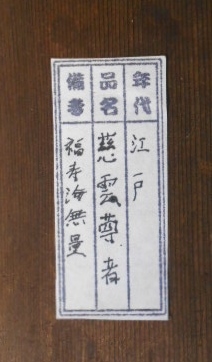 年代 江戸
品名 慈雲尊者
備考 福寿海無量